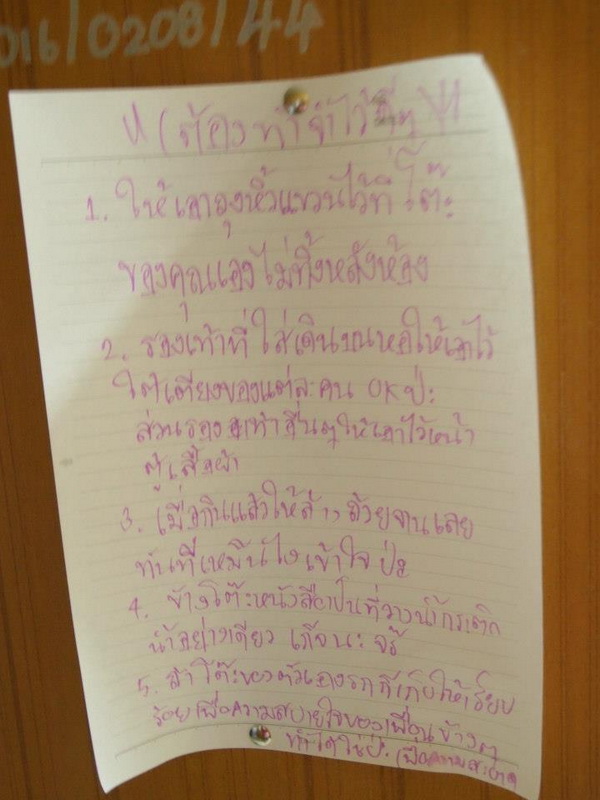 016/0208/44
ต้องทำ
1. ให้เอาถุงหิ้วแขวนไว้ที่โต๊ะ
ของคุณเองไม่ทิ้งหลังห้อง
2. รองเท้าที่ใส่เดินบนหอให้เอาไว้
ใต้เตียงของแต่ละคน OK ป่ะ
ส่วนรองเท้าอื่นๆให้เอาไว้หน้า
ตู้เสื้อผ้า
3. เมื่อกินแล้วให้ล้างถ้วยจานเลย
ทันที เข้าใจป่ะ
4. ข้างโต๊ะหนังสือเป็นที่วางน้ำกระติก
น้ำอย่างเดียว นะจ๊ะ
5. ถ้าโต๊ะของตัวเองรกก็เก็บให้เรียบ
ร้อยเพื่อความสบายใจของเพื่อนข้างๆ
ทำได้ไหมป่ะ เพื่อความสะอาด